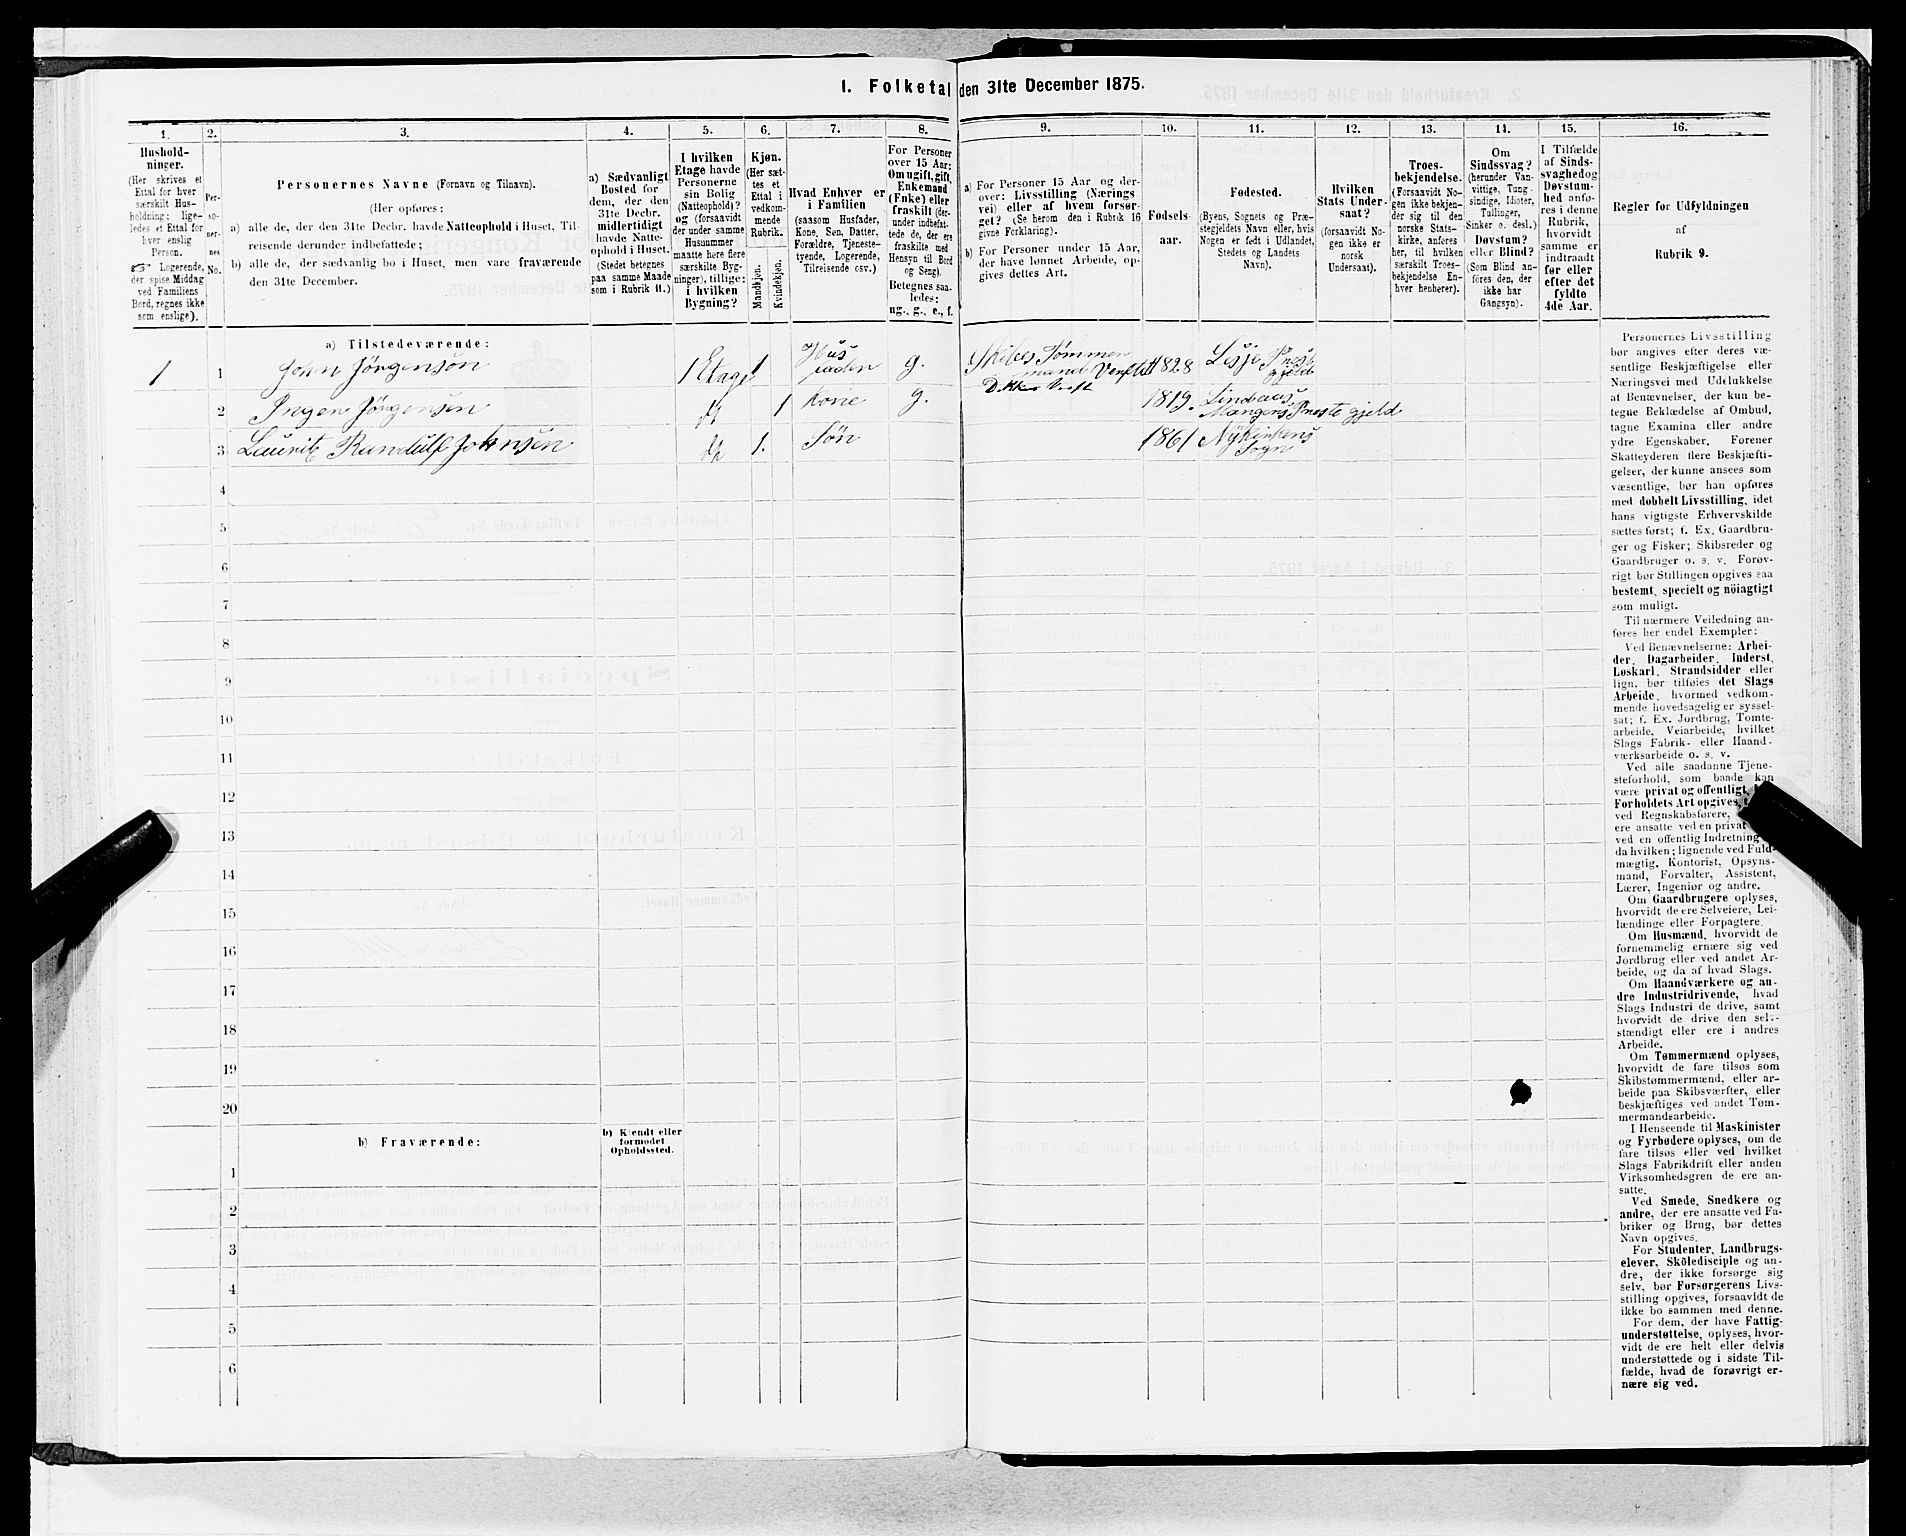 1. Folketal den 31te December 1875.
1.
Hushold-
ninger.
(Her skrives et
Ettal for hver
særskilt Hus-
holdning; lige-
ledes et Ettal for
hver enslig
Person.
☞ Logerende,
der spise Middag
ved Familiens
Bord, regnes ikke
som enslige).
2.
Per-
so-
ner-
nes
No.
3.
Personernes Navne (Fornavn og Tilnavn).
(Her opføres:
a) alle de, der den 31te Decbr. havde Natteophold i Huset, Til-
reisende derunder indbefattede;
b) alle de, der sædvanlig bo i Huset, men vare fraværende
den 31te December.
4.
a) Sædvanligt
Bosted for
dem, der den
31te Decbr.
midlertidigt
havde Natte-
ophold i Huset.
(Stedet betegnes
paa samme Maade
som i Rubrik 11.)
5.
I hvilken
Etage havde
Personerne
sin Bolig
(Natteophold)?
og (forsaavidt
der under samme
Husnummer
maatte høre flere
særskilte Byg-
ninger), tillige:
i hvilken
Bygning?
6.
Kjøn.
(Her sæt-
tes et
Ettal i
vedkom-
mende
Rubrik.
Mandkjøn.
Kvindekjøn.
7.
Hvad Enhver er
i Familien
(saasom Husfader,
Kone, Søn, Datter,
Forældre, Tjeneste-
tyende, Logerende,
Tilreisende osv.)
8.
For Personer
over 15 Aar:
Om ugift, gift,
Enkemand
(Enke) eller
fraskilt (der-
under indbefat-
tede de, der ere
fraskilte med
Hensyn til Bord
og Seng).
Betegnes saa-
ledes:
ug., g., e., f.
9.
a) For Personer 15 Aar og der-
over: Livsstilling (Nærings
vei) eller af hvem forsør-
get? (Se herom den i Rubrik 16
givne Forklaring).
b) For Personer under 15 Aar,
der have lønnet Arbeide, op-
gives dettes Art.
10.
Fødsels-
aar.
11.
Fødested.
(Byens, Sognets og Præ-
stegjeldets Navn eller, hvis
Nogen er født i Udlandet,
Stedets og Landets
Navn).
12.
Hvilken
Stats Under-
saat?
(forsaavidt No-
gen ikke er
norsk
Undersaat).
13.
Troes-
bekjendelse.
(Forsaavidt No-
gen ikke bekjen-
der sig til den
norske Stats-
kirke, anføres
her, til hvilken
særskilt Troes-
bekjendelse En-
hver henhører).
14.
Om
Sindssvag?
(herunder Van-
vittige, Tung-
sindige, Idioter,
Tullinger,
Sinker o. desl.)
Døvstum?
eller Blind?
(Som Blind an-
føres den, der
ikke har
Gangsyn).
15.
I Tilfælde
af Sinds-
svaghed og
Døvstum-
hed anfø-
res i denne
Rubrik,
hvorvidt
samme er
indtraadt
før eller
efter det
fyldte
4de Aar.
16.
Regler for Udfyldningen
af
Rubrik 9.
a) Tilstedeværende:
1 1 John Jörgensön 1 Etage 1 Hus fader g. Skibs Tømmer mand Verftet 1828 Lesje Prest gjeld
2 Ingen Jörgensen dt 1 kone g. 1819. Lindaas Mangers Preste gjeld
3 Laurits Randulf Johnsen dt 1. Søn 1861 Nykirkens Sogn
4
5
6
7
8
9
10
11
12
13
14
15
16
17
18
19
20
b) Fraværende:
b) Kjendt eller
formodet
Opholdssted.
1
2
3
4
5
6
Personernes Livsstilling
bør angives efter deres væ-
sentlige Beskjæftigelse eller
Næringsvei med Udelukkelse
af Benævnelser, der kun be-
tegne Beklædelse af Ombud,
tagne Examina eller andre
ydre Egenskaber. Forener
Skatteyderen flere Beskjæfti-
gelser, der kunne ansees som
væsentlige, bør han opføres
med dobbelt Livsstilling, idet
hans vigtigste Erhvervskilde
sættes først; f. Ex. Gaardbru-
ger og Fisker; Skibsreder og
Gaardbruger o. s. v. Forøv-
rigt bør Stillingen opgives saa
bestemt, specielt og nöiagtigt
som muligt.
Til nærmere Veiledning an-
føres her endel Exempler:
Ved Benævnelserne: Arbei-
der, Dagarbeider, Inderst,
Løskarl, Strandsidder eller
lign. bør tilføies det Slags
Arbeide, hvormed vedkom-
mende hovedsagelig er syssel-
sat; f. Ex. Jordbrug, Tomte-
arbeide, Veiarbeide, hvilket
Slags Fabrik- eller Haand-
værksarbeide o. s. v.
Ved alle saadanne Tjene-
steforhold, som baade kan
være privat og offentligt,
Forholdets Art opgives,
ved Regnskabsførere,
ere ansatte ved en privat
ved en offentlig Indretning
da hvilken; lignende ved Fuld-
mægtig, Kontorist, Opsyns-
mand, Forvalter, Assistent,
Lærer, Ingeniør og andre.
Om Gaardbrugere oplyses,
hvorvidt de ere Selveiere, Lei-
lændinge eller Forpagtere.
Om Husmænd, hvorvidt de
fornemmelig ernære sig ved
Jordbrug eller ved andet Ar-
beide, og da af hvad Slags.
Om Haandværkere og an-
dre Industridrivende, hvad
Slags Industri de drive, samt
hvorvidt de drive den selv-
stændigt eller ere i andres
Arbeide.
Om Tømmermænd oplyses,
hvorvidt de fare tilsøs som
Skibstømmermænd, eller ar-
beide paa Skibsværfter, eller
beskjæftiges ved andet Tøm-
mermandsarbeide.
I Henseende til Maskinister
og Fyrbødere oplyses, om de
fare tilsøs eller ved hvilket
Slags Fabrikdrift eller anden
Virksomhedsgren de ere an-
satte.
Ved Smede, Snedkere og
andre, der ere ansatte ved Fa-
briker og Brug, bør dettes
Navn opgives.
For Studenter, Landbrugs-
elever, Skoledisciple og an-
dre, der ikke forsørge sig
selv, bør Forsørgerens Livs-
stilling opgives, forsaavidt de
ikke bo sammen med denne.
For dem, der have Fattig-
understøttelse, oplyses, hvor-
vidt de ere helt eller delvis
understøttede og i sidste Til-
fælde, hvad de forøvrigt er-
nære sig ved.